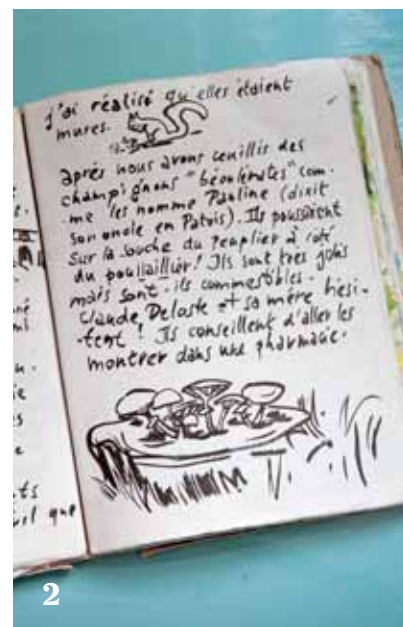 j'ai réalisé qu'elles étaient
mures.
après nous avons ceuillis des
champignons "béoulenotes" com-
-me les nomme Pauline (dixit
son oncle en Patois). Ils poussaient
sur la souche du peuplier à coté
du poullailler! Ils sont très jolis
mais sont-ils commestibles.
Claude Delaste et sa mère hési-
-tent! Is conseillent d'aller les
montrer dans une pharmacie.
ts
il que
2